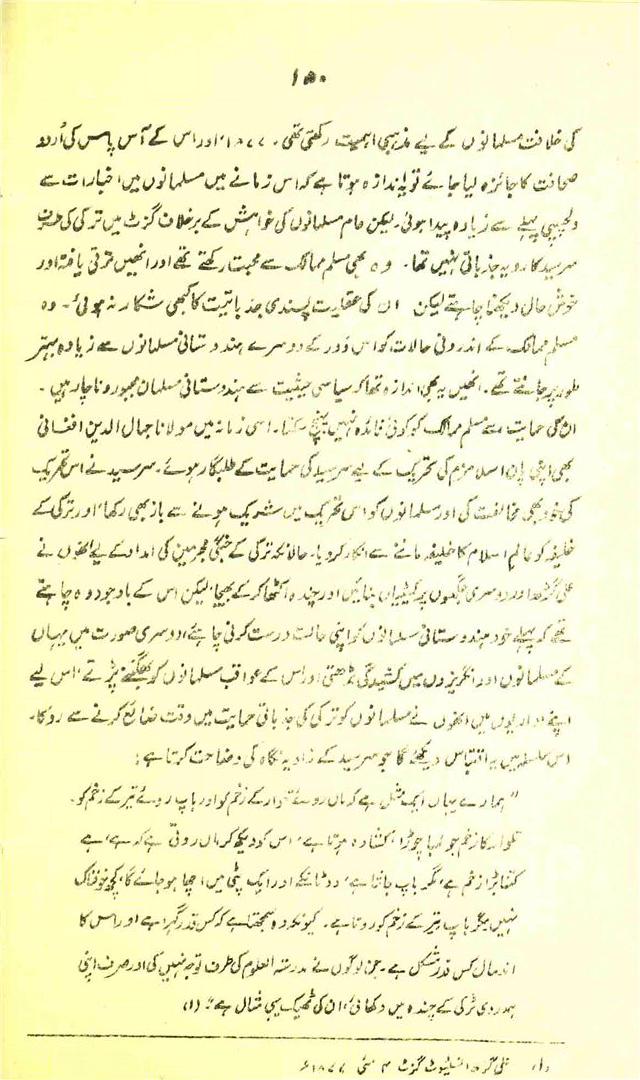 ۱۵۰
کی خلافت مسلمانوں کے لیے مذہبی اہمیت رکھتی تھی۔ ۱۸۷۷ء اور اس کے آس پاس کی اُردو
صحافت کا جائزہ لیا جائے تو یہ اندازہ ہوتا ہے کہ اس زمانے میں مسلمانوں میں اخبارات سے
دلچسپی پہلے سے زیادہ پیدا ہوئی۔ لیکن عام مسلمانوں کی خواہش کے برخلاف گزٹ میں ترکی کی طرف
سرسید کا رویہ جذباتی نہیں تھا۔ وہ بھی مسلم ممالک سے محبت رکھتے تھے اور انھیں ترقی یافتہ اور
خوش حال دیکھنا چاہتے لیکن ان کی عقلیت پسندی جذباتیت کا کبھی شکار نہ ہوئی۔ وہ
مسلم ممالک کے اندرونی حالات کو اس دور کے دوسرے ہندوستانی مسلمانوں سے زیادہ بہتر
طور پر جانتے تھے۔ انھیں یہ بھی اندازہ تھا کہ سیاسی حیثیت سے ہندوستانی مسلمان مجبور و ناچار ہیں۔
ان کی حمایت سے مسلم ممالک کو کوئی فائدہ نہیں پہنچ سکتا۔ اسی زمانہ میں مولانا جمال الدین افغانی
بھی اپنی پان اسلامزم کی تحریک کے لیے سرسید کی حمایت کے طلبگار ہوئے۔ سرسید نے اس تحریک
کی خود بھی مخالفت کی اور مسلمانوں کو اس تحریک میں شریک ہونے سے باز بھی رکھا، اور ترکی کے
خلیفہ کو عالم اسلام کا خلیفہ ماننے سے انکار کر دیا۔ حالانکہ ترکی کے جنگی مجروحین کی امداد کے لیے انھوں نے
علی گڑھ اور دوسری جگہوں پر کمیٹیاں بنائیں اور چندہ اکٹھا کر کے بھیجا، لیکن اس کے باوجود وہ چاہتے
تھے کہ پہلے خود ہندوستانی مسلمانوں کو اپنی حالت درست کرنی چاہئے، دوسری صورت میں یہاں
کے مسلمانوں اور انگریزوں میں کشیدگی بڑھتی اور اس کے عواقب مسلمانوں کو بھگتنے پڑتے، اس لیے
اپنے اداریوں میں انھوں نے مسلمانوں کو ترکی کی جذباتی حمایت میں وقت ضائع کرنے سے روکا۔
اس سلسلے میں یہ اقتباس دیکھئے گا جو سرسید کے زاویہ نگاہ کی وضاحت کرتا ہے:
"ہمارے یہاں ایک مثل ہے کہ ماں روئے تلوار کے زخم کو اور باپ روئے تیر کے زخم کو۔
تلوار کا زخم جو لمبا چوڑا، کشادہ ہوتا ہے، اس کو دیکھ کر ماں روتی ہے کہ ہے، ہے
کتنا بڑا زخم ہے، مگر باپ جانتا ہے، دو ٹانکے اور ایک پٹی میں اچھا ہو جائے گا، کچھ خوفناک
نہیں مگر باپ تیر کے زخم کو روتا ہے۔ کیونکہ وہ سمجھتا ہے کہ کس قدر گہرا ہے اور اس کا
اندمال کس قدر مشکل ہے۔ جن لوگوں نے مدرستہ العلوم کی طرف توجہ نہیں کی اور صرف اپنی
ہمدردی ترکی کے چندہ میں دکھائی، ان کی ٹھیک یہی مثال ہے۔" (۱)
(۱) علی گڑھ انسٹیٹیوٹ گزٹ ۴ مئی ۱۸۷۷ء